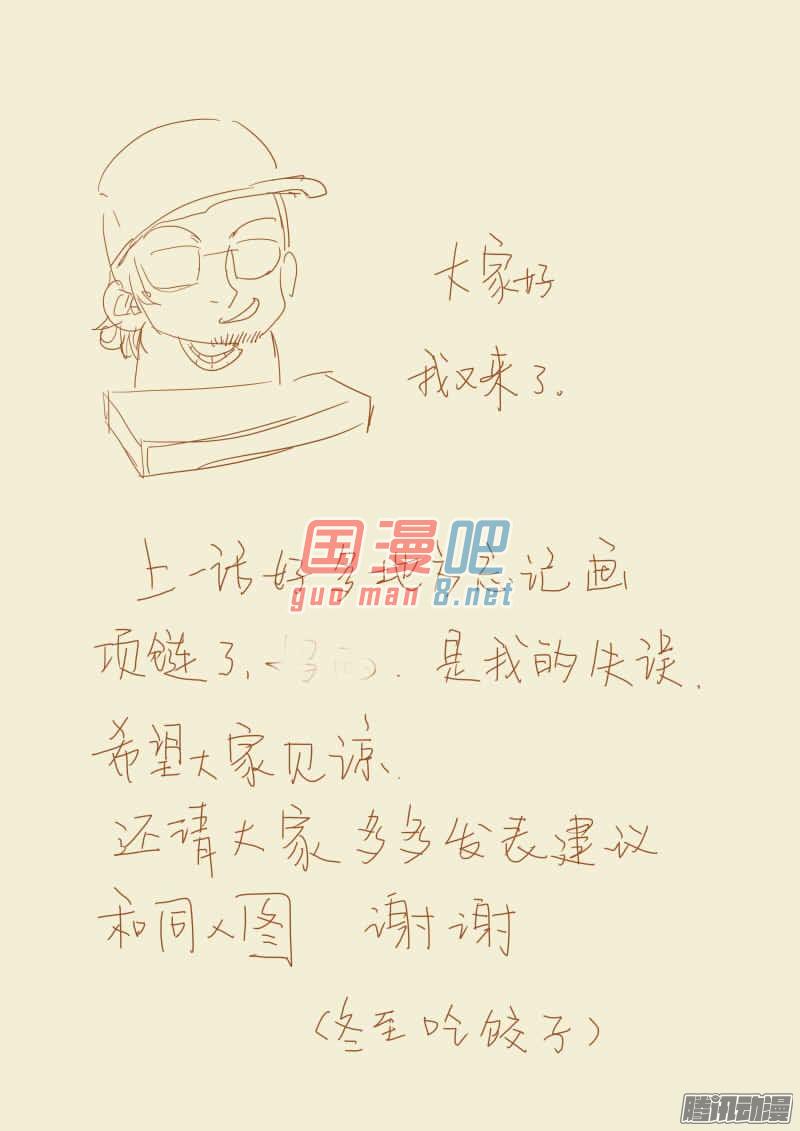 大家好
我又来了。
上一话好多地方忘记画
国漫吧
guoman8.net
项链了, 是我的失误.
希望大家见谅、
还请大家多多发表建议
和同人图 谢谢
(冬至吃饺子)
腾讯动漫